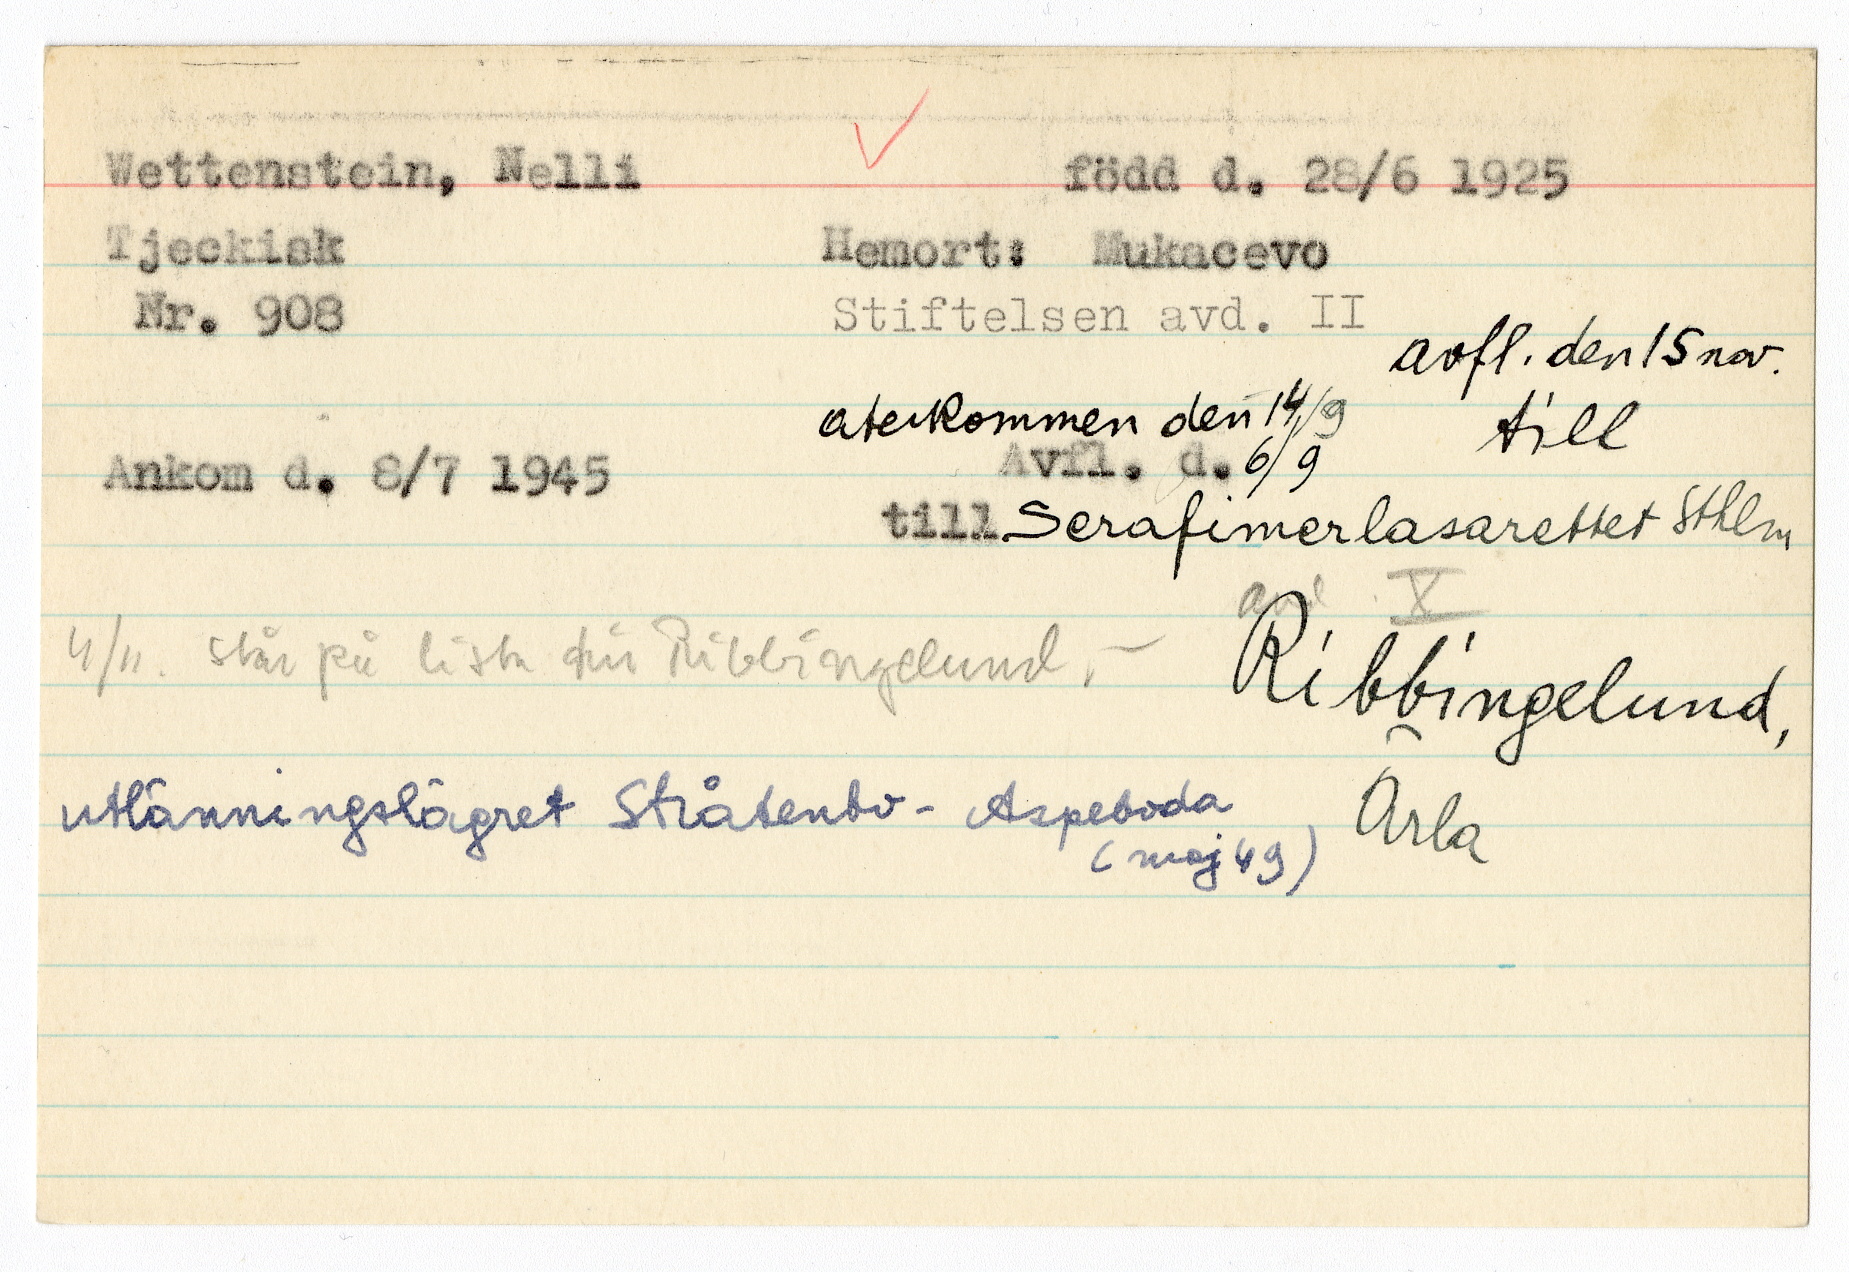 Wettenstein, Nelli född d. 28/6 1925
Tjeckisk Hemort: Mukacevo
Nr. 908 Stiftelsen avd. II
avfl. den 15 nov.
återkommen den 14/9 till
Ankom d. 8/7 1945 Avfl. d. 6/9
till Serafimerlasarettet Sthlm
avd. X
4/11. står på lista för Ribbingelund.
Ribbingelund,
utlänningslägret Stråtenbo - Aspeboda Ärla
(maj 49)